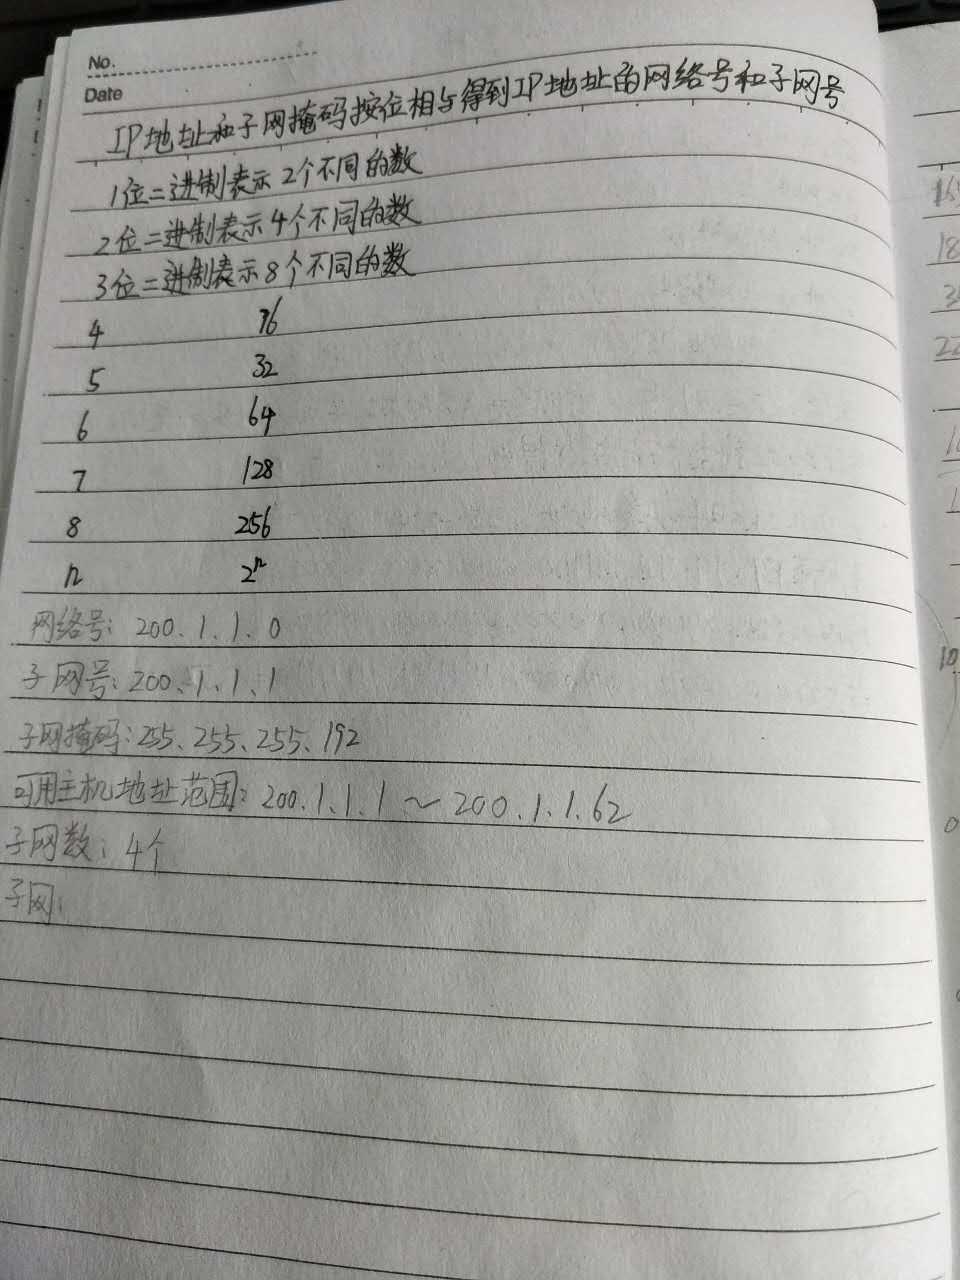 No.
Date
IP地址和子网掩码按位相与得到IP地址的网络号和子网号
1位二进制表示2个不同的数
2位二进制表示4个不同的数
3位二进制表示8个不同的数
4 16
5 32
6 64
7 128
8 256
n 2ⁿ
网络号: 200.1.1.0
子网号: 200.1.1.1
子网掩码: 255.255.255.192
可用主机地址范围: 200.1.1.1～200.1.1.62
子网数: 4个
子网:
18
10
0